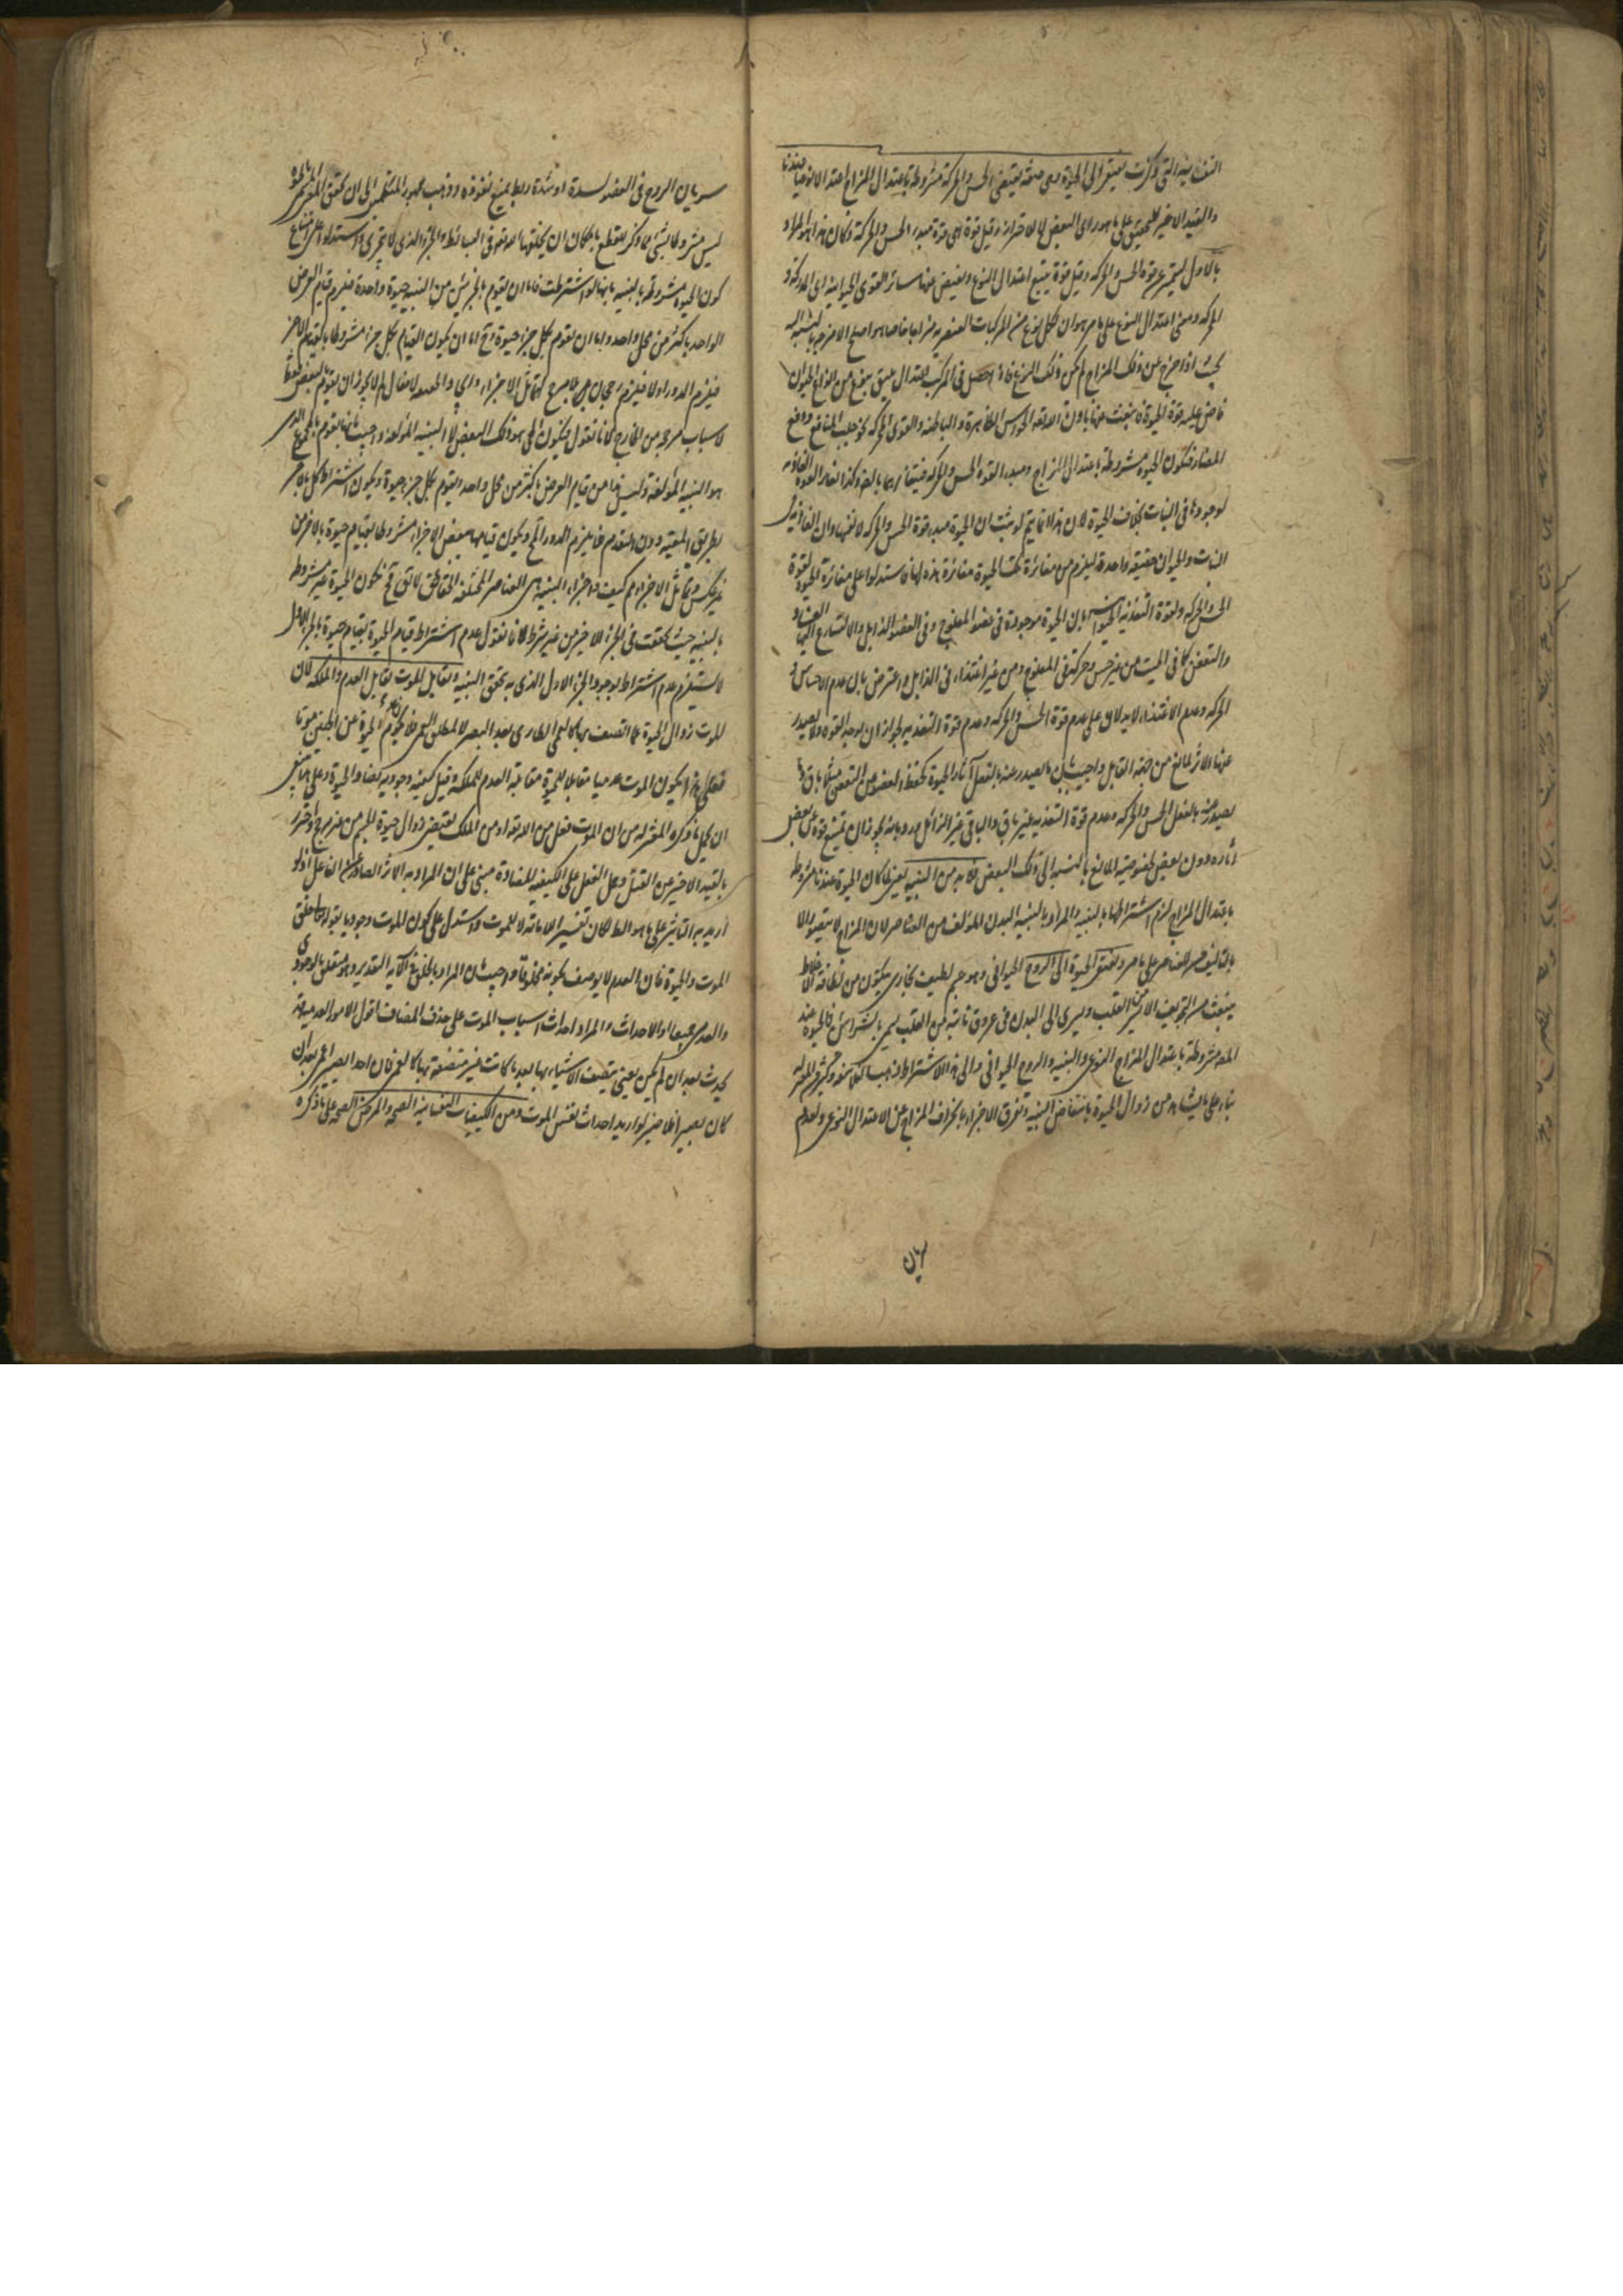 النفسانية التي ذكرت يفتقر الى الحيوة وهي صفة تقتضي الحس والحركة مشروطة باعتدال المزاج اعتدالا نوعيا عندنا
والقيد الاخير للتحقيق على ما هو رأى البعض لا للاحتراز وقيل قوة هي قوة مبدء الحس والحركة وكان هذا هو المراد
بالاول ليتميز عن قوة الحس والحركة وقيل قوة يتبع اعتدال النوع ويفيض عنها سائر القوى الحيوانية اى المدركة و
المحركة ومعنى اعتدال النوع على ما مر هو ان لكل نوع من المركبات العنصرية مزاجا خاصا هو اصلح الامزجة بالنسبة اليه
بحيث اذا خرج عن ذلك المزاج لم يكن ذلك النوع فاذا حصل في المركب اعتدال يليق بنوع من انواع الحيوان
فاض عليه قوة الحيوة فانبعثت عنها باذن الله تعالى الحواس الظاهرة والباطنة والقوى المحركة نحو جلب المنافع ودفع
المضار فتكون الحيوة مشروطة باعتدال المزاج ومبدء القوة الحس والحركة فيتغايرهما بالضرورة وكذا تغاير القوة الغاذية
لوجودها في النبات بخلاف الحيوة لكن هذا انما يتم لو ثبت ان الحيوة مبدء قوة الحس والحركة لا نفسها وان الغاذية في
النبات والحيوان حقيقة واحدة ليلزم من مغايرة تلك الحيوة مغايرة هذه لها واستدلوا على مغايرة الحيوة لقوة
الحس والحركة ولقوة التغذية الحيوانية بان الحيوة موجودة في العضو المفلوج وفى العضو الذابل والا لتسارع اليهما الفساد و
والتعفن كما في الميت من غير حس وحركة في المفلوج ومن غير اغتذاء في الذابل واعترض بان عدم الاحساس و
الحركة وعدم الاغتذاء لا يدلان على عدم قوة الحس والحركة وعدم قوة التغذية لجواز ان يوجد القوة ولا يصدر
عنها الاثر لمانع من جهة القابل واجيب بان ما يصدر عنه بالفعل آثار الحيوة كحفظ العضو من التعفن مثلا باق وما
يصدر عنه بالفعل الحس والحركة وعدم قوة التغذية غير باق والباقي غير الزائل ورد بانه يجوز ان تمتنع قوة عن بعض
آثاره دون بعض لخصوصية المانع بالنسبة الى ذلك البعض فلا بد من البنية يعنى لما كان الحيوة عندنا مشروطة
باعتدال المزاج لزم اشتراطها بالبنية والمراد بالبنية البدن المؤلف من العناصر لان المزاج لا يتصور الا
بالتأليف من العناصر على ما مر وتفتقر الحيوة الى الروح الحيواني وهو جسم لطيف بخارى يتكون من لطافة الاخلاط
ينبعث من التجويف الايسر من القلب ويسرى الى البدن في عروق نابتة من القلب يسمى بالشرايين فالحيوة عند
المعتزلة مشروطة باعتدال المزاج النوعي والبنية والروح الحيواني والى هذا الاشتراط ذهب الفلاسفة وكثير من المعتزلة
بناء على ما يشاهد من زوال الحيوة بانتقاض البنية وتفرق الاجزاء بانحراف المزاج عن الاعتدال النوعي وبعدم
سريان
سريان الروح في العضو لسدة او شدة ربط يمنع نفوذه وذهب جمهور المتكلمين الى ان تحقق المعنى المسمى بالحيوة
ليس مشروطا بشئ مما ذكر للقطع بامكان ان يخلقها الله تعالى في البسائط والجزء الذى لا يتجزى واستدلوا على امتناع
كون الحيوة مشروطة بالبنية بانها لو اشترطت فاما ان يقوم بالجزئين من البنية حيوة واحدة فيلزم قيام العرض
الواحد باكثر من محل واحد واما ان يقوم بكل جزء حيوة وح اما ان يكون القيام بكل جزء مشروطا بالقيام بالاخر
فيلزم الدور او لا فيلزم رجحان بلا مرجح لتماثل الاجزاء واى والجمعه لا يقال لم لا يجوز ان يقوم بالبعض فقط
لاسباب مرجحة من الخارج لانا نقول فيكون الحى هو ذلك البعض لا البنية المؤلفة واجيب بانها تقوم بالمجموع الذى
هو البنية المؤلفة وليس هذا من قيام العرض باكثر من محل واحد او يقوم بكل جزء حيوة ويكون اشتراط كل بالاخر
بطريق المعية دون التقدم فلا يلزم الدور المح او يكون قيامها ببعض الاجزاء مشروطا بقيام حيوة بالاخر من
غير عكس وتماثل الاجزاء مم كيف واجزاء البنية هى العناصر المختلفة الحقائق لا يقال فح تكون الحيوة غير مشروطة
بالبنية حيث تحققت في الجزء الاخير من غير شرط لانا نقول عدم اشتراط قيام الحيوة بقيام حيوة بالجزء الاول
لا يستلزم عدم اشتراط بوجود الجزء الاول الذى به تحقق البنية وتقابل الموت تقابل العدم والملكة لان
الموت زوال الحيوة عما اتصف بها كالعمى الطارى بعد البصر لا كمطلق العمى فلا يكون عدم الحيوة عن الجنين موتا
فعلى هذا يكون الموت عدميا مقابلا للحيوة مقابلة العدم للملكة وقيل كيفية وجودية يضاد الحيوة وعلى هذا ينبغي
ان يحمل ما ذكره المعتزلة من ان الموت فعل من الله تعالى او من الملك يقتضى زوال حيوة الجسم من غير جرح واحترز
بالقيد الاخير عن القتل وحمل الفعل على الكيفية المضادة مبنى على ان المراد به الاثر الصادر عن الفاعل اذ لو
اريد به التأثير على ما هو الظ لكان تفسير الاماتة لا للموت واستدل على كون الموت وجوديا بقوله تعالى خلق
الموت والحيوة فان العدم لا يوصف بكونه مخلوقا واجيب بان المراد بالخلق في الآية التقدير وهو متعلق بالوجودى
والعدمى جميعا او الاحداث والمراد احداث اسباب الموت على حذف المضاف اقول الامور العدمية قد
يحدث بعد ان لم يكن يعنى يتصف الاشياء بها بعد ما كانت غير متصفة بها كالعمى فان احدا يصير اعمى بعد ان
كان بصيرا فلا ضير لو اريد احداث نفس الموت ومن الكيفيات النفسانية الصحة والمرض الصحة على ما ذكره